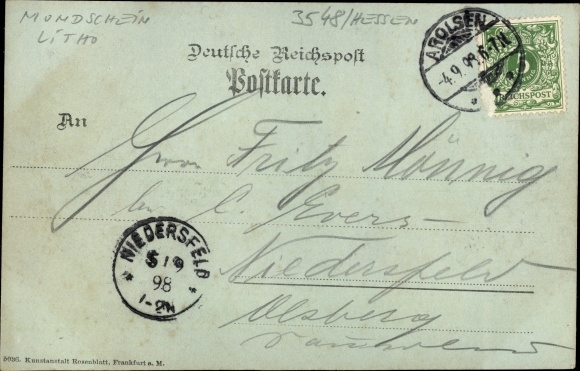 MONDSCHEIN
LITHO
3548/HESSEN
AROLSEN
-4.9.98.6-7N.
REICHSPOST
Deutsche Reichspost
Postkarte.
An
Herrn Fritz Mönnig
bei C. Evers
Niedersfeld
Olsberg
NIEDERSFELD
5/9
98
1-2N
5036. Kunstanstalt Rosenblatt, Frankfurt a. M.